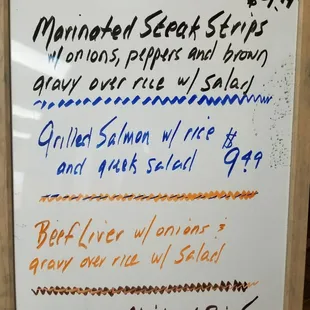 Marinated Steak Strips
w/ onions, peppers and brown
gravy over rice w/ Salad
Grilled Salmon w/ rice $
and greek salad 9.49
Beef Liver w/ onions &
gravy over rice w/ Salad